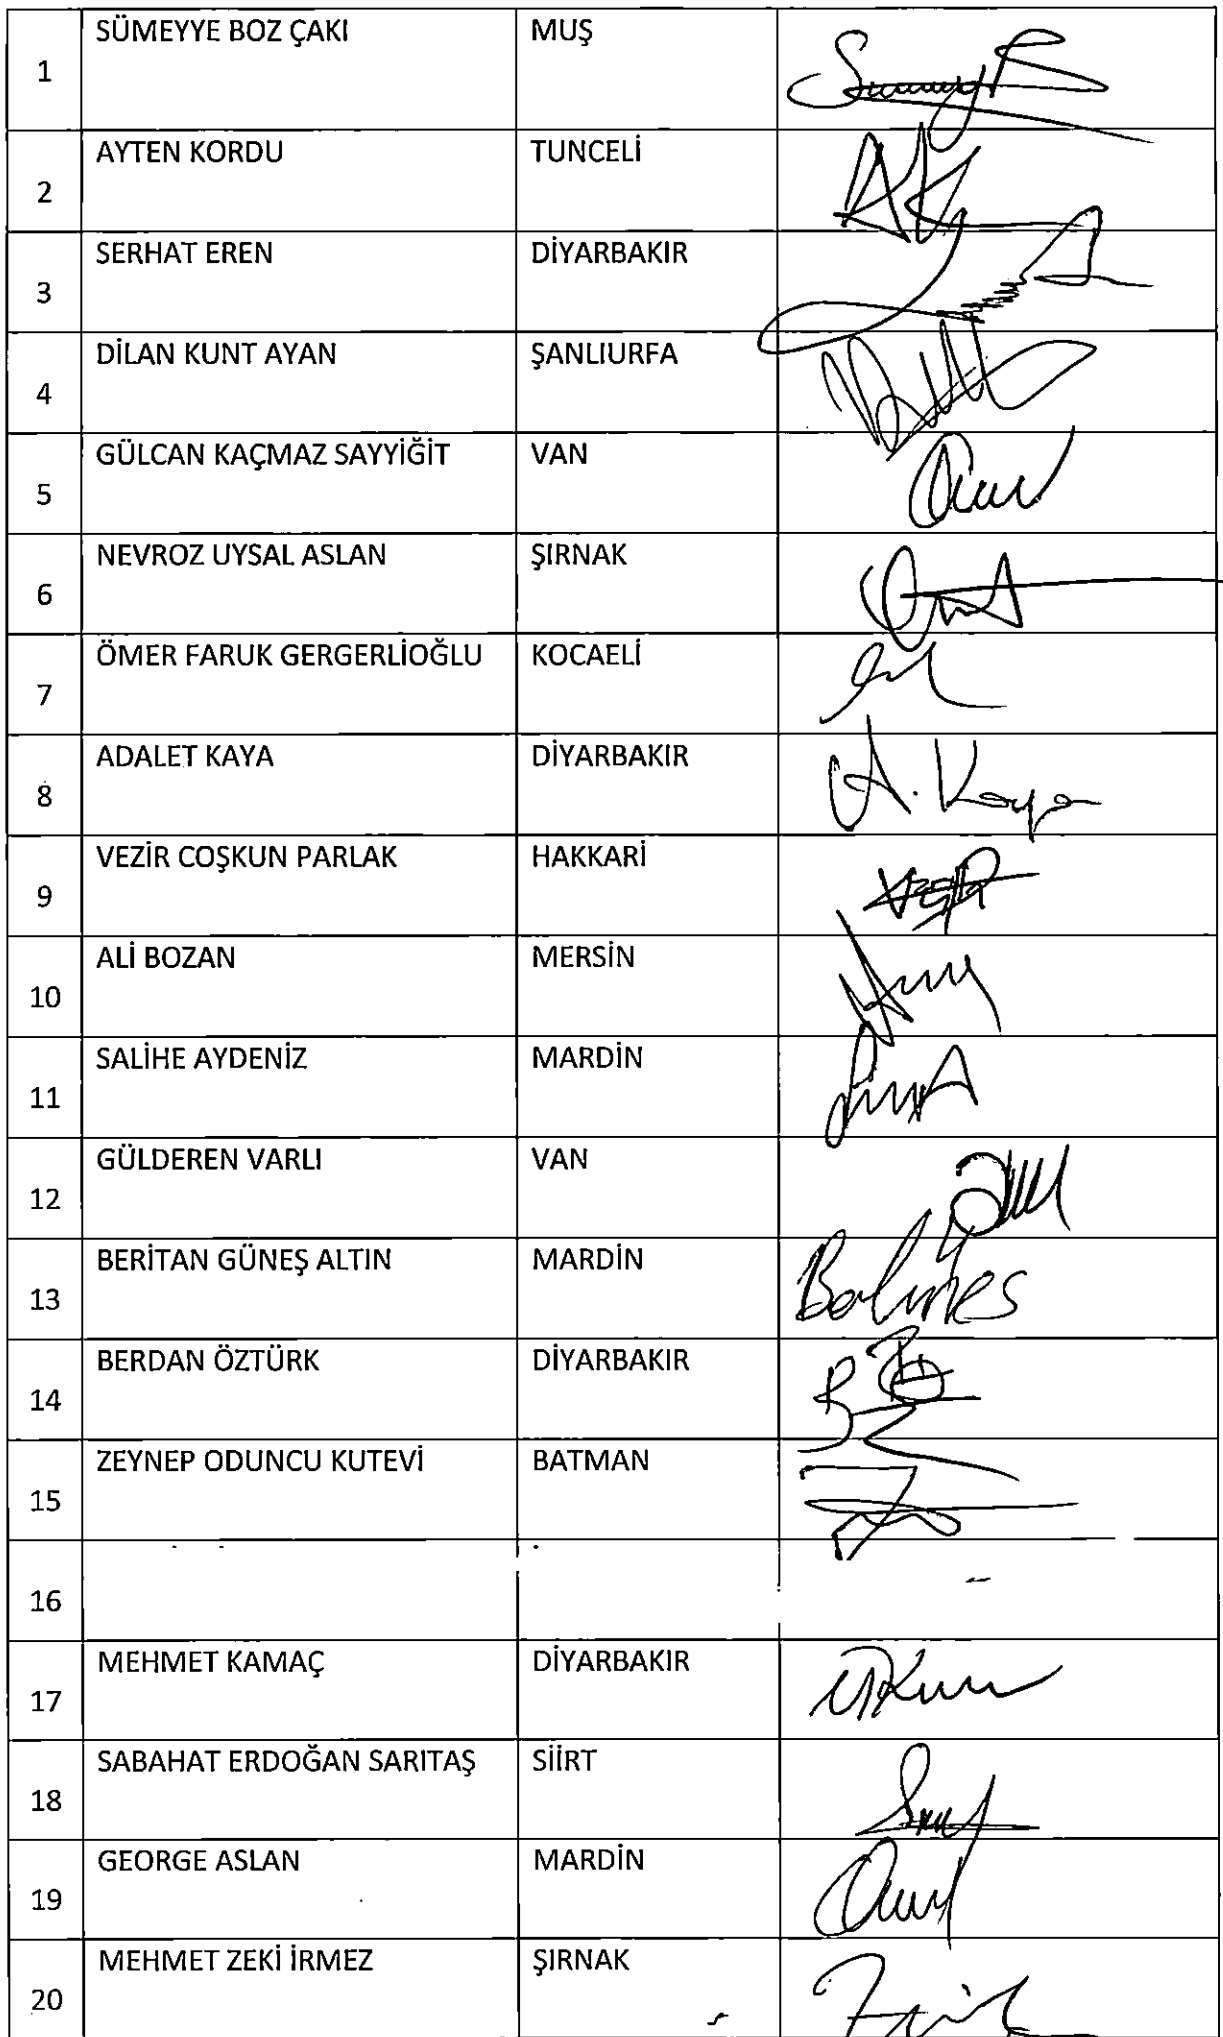 1 SÜMEYYE BOZ ÇAKI MUŞ
2 AYTEN KORDU TUNCELİ
3 SERHAT EREN DİYARBAKIR
4 DİLAN KUNT AYAN ŞANLIURFA
5 GÜLCAN KAÇMAZ SAYYİĞİT VAN
6 NEVROZ UYSAL ASLAN ŞIRNAK
7 ÖMER FARUK GERGERLİOĞLU KOCAELİ
8 ADALET KAYA DİYARBAKIR A. Kaya
9 VEZİR COŞKUN PARLAK HAKKARİ
10 ALİ BOZAN MERSİN
11 SALİHE AYDENİZ MARDİN
12 GÜLDEREN VARLI VAN
13 BERİTAN GÜNEŞ ALTIN MARDİN
14 BERDAN ÖZTÜRK DİYARBAKIR
15 ZEYNEP ODUNCU KUTEVİ BATMAN
16
17 MEHMET KAMAÇ DİYARBAKIR
18 SABAHAT ERDOĞAN SARITAŞ SİİRT
19 GEORGE ASLAN MARDİN
20 MEHMET ZEKİ İRMEZ ŞIRNAK